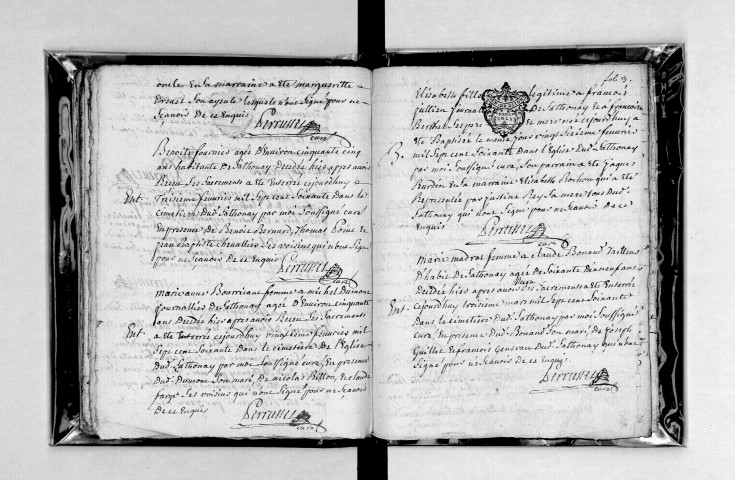 oncle et la marraine a été margueritte
Drevet son ayeule lesquels n'ont signé pour ne
sçavoir de ce enquis
Perrusset
curé
Benoite fournier agée d'environ cinquante cinq
ans habitante de Sathonay Decedée hier apres avoir
Receu ses sacrements a été enterrée cejourdhuy
Ent.
Treisieme fevrier mil sept cent Soixante Dans le
Cimetiere Dud. Sathonay par moi Soussigné curé
En presence de Benoit Bernard, Thomas et
jean baptiste chevallier ses voisins qui n'ont signé
pour ne sçavoir de ce enquis
Perrusset
curé
marieanne femme a michel Dumont
journallier de Sathonay agée d'Environ cinquante
ans Decedée hier apres avoir Receu ses Sacrements
Ent.
a été enterrée cejourdhuy vingt fevrier mil
sept cent soixante Dans le cimetiere de l'Eglise
Dud. Sathonay par moi Soussigné curé En presence
Dud. Dumont son mari De nicolas Billon, et claude
farge ses voisins qui n'ont signé pour ne sçavoir
De ce Enquis
Perrusset
curé
fol. 3.
Elisabeth fille legitime a francois
jullien journalier De Sathonay et a francoise
Berthet née cejourdhuy a
été Baptisée le meme jour vingt sixieme fevrier
B.
mil sept cent Soixante Dans l'Eglise Dud. Sathonay
par moi Soussigné curé, Son parrain a été jaques
Burdin et la marraine elisabeth Rochon qui a été
Representée par Rey sa mere tous Dud.
Sathonay qui n'ont signé pour ne sçavoir de ce
Enquis
Perrusset
curé
marie madras femme a claude Bonand tailleur
D'habit de Sathonay agée de Soixante Dixneuf ans
Decedée hier apres avoir Receu ses sacrements a été enterrée
Ent.
cejourdhuy troisieme mars mil sept cent soixante
Dans le cimetiere Dud. Sathonay par moi Soussigné
curé, En presence Dud. Bonand son mari, de joseph
Guillet et francois Dud. Sathonay qui n'ont
signé pour ne sçavoir de ce enquis
Perrusset
curé